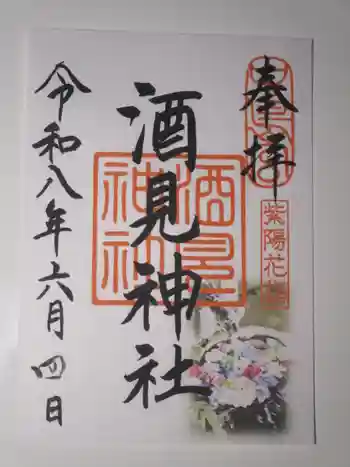 奉拝
紫陽花
酒見神社
酒見
神社
令和八年六月四日